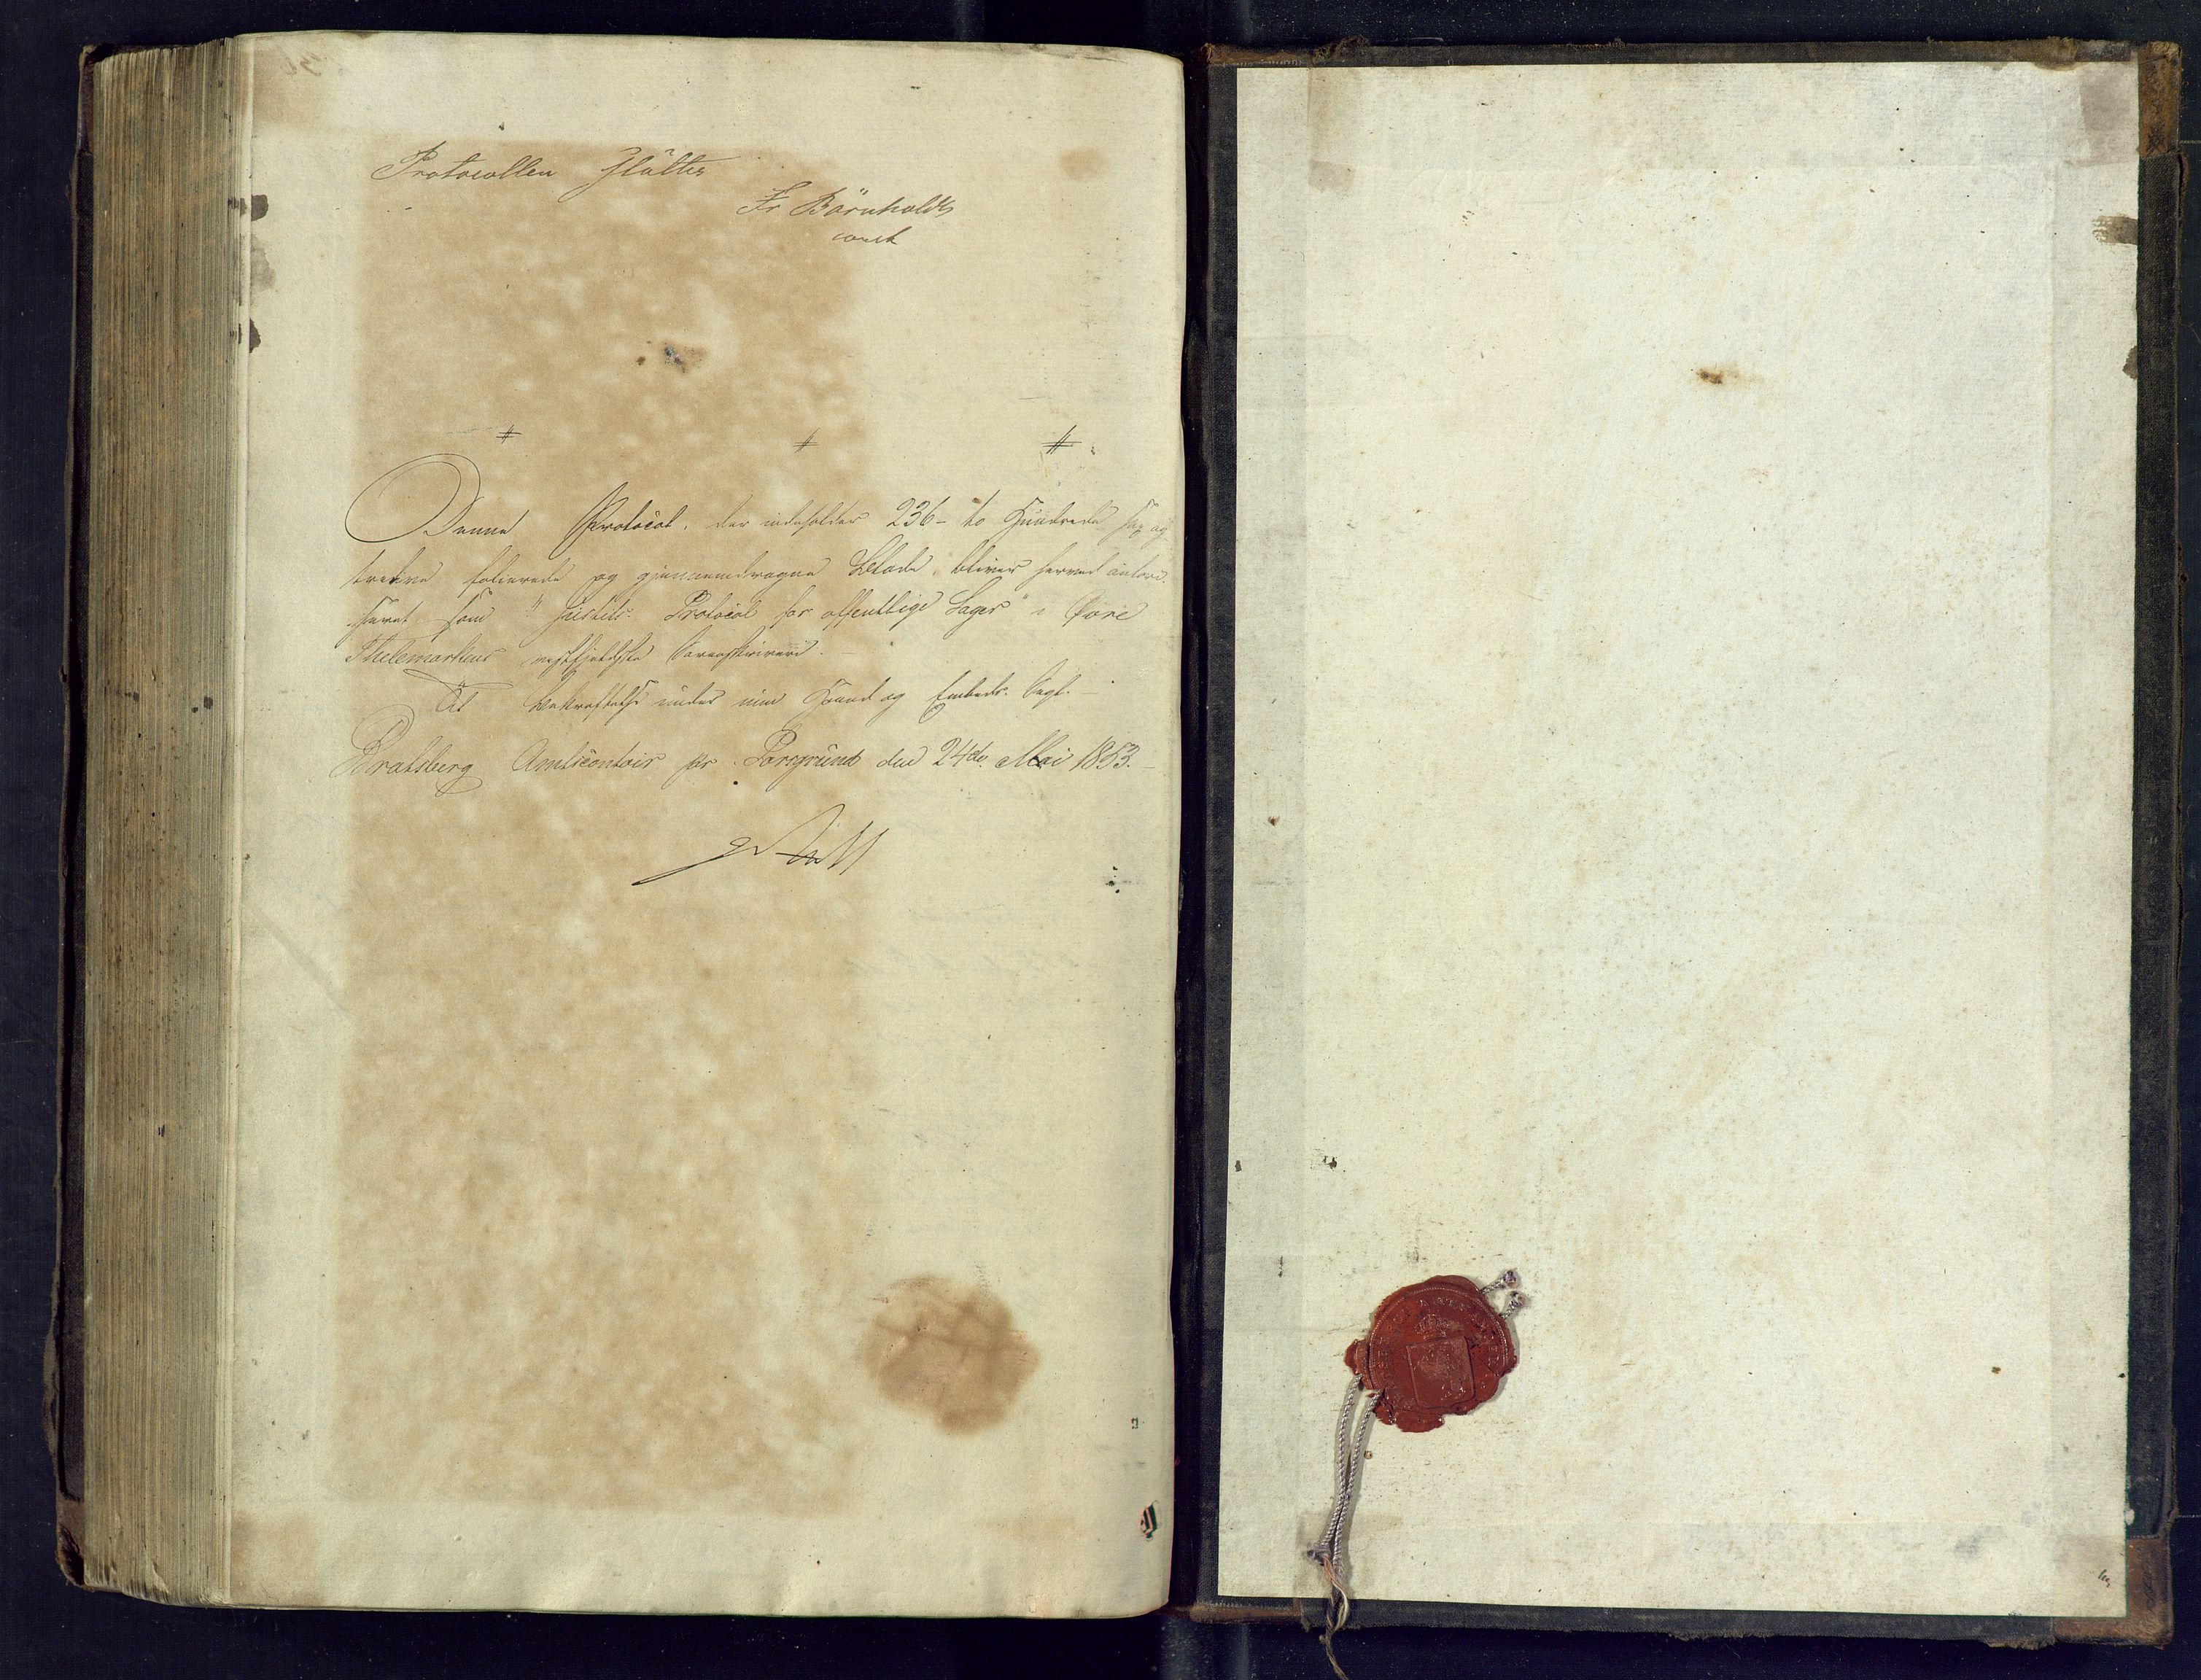 Protocollen slutter
Fr Börnholdt
const
Denne Protocol, der indeholder 236 – to Hundrede sex og
tredve folierede og gjennemdragne Blade, bliver herved autori-
seret som "Justits-Protocol for offentlige Sager" i Øvre
Thelemarkens vestfjeldske Sorenskriveri.
At bekræftes under min Haand og Embeds-Segl. –
Bratsberg Amtscontoir pr. Porsgrund den 24de Mai 1853. –